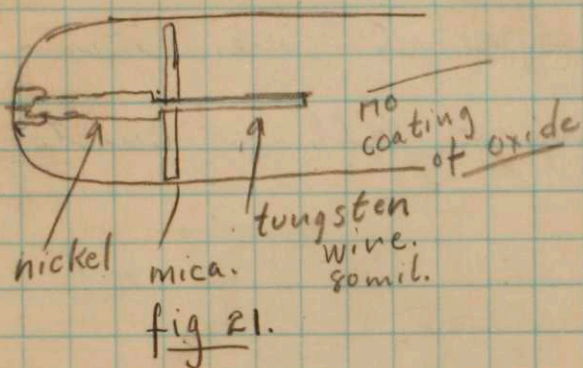 no
coating
of oxide
nickel
mica.
tungsten
wire.
80mil.
fig 21.